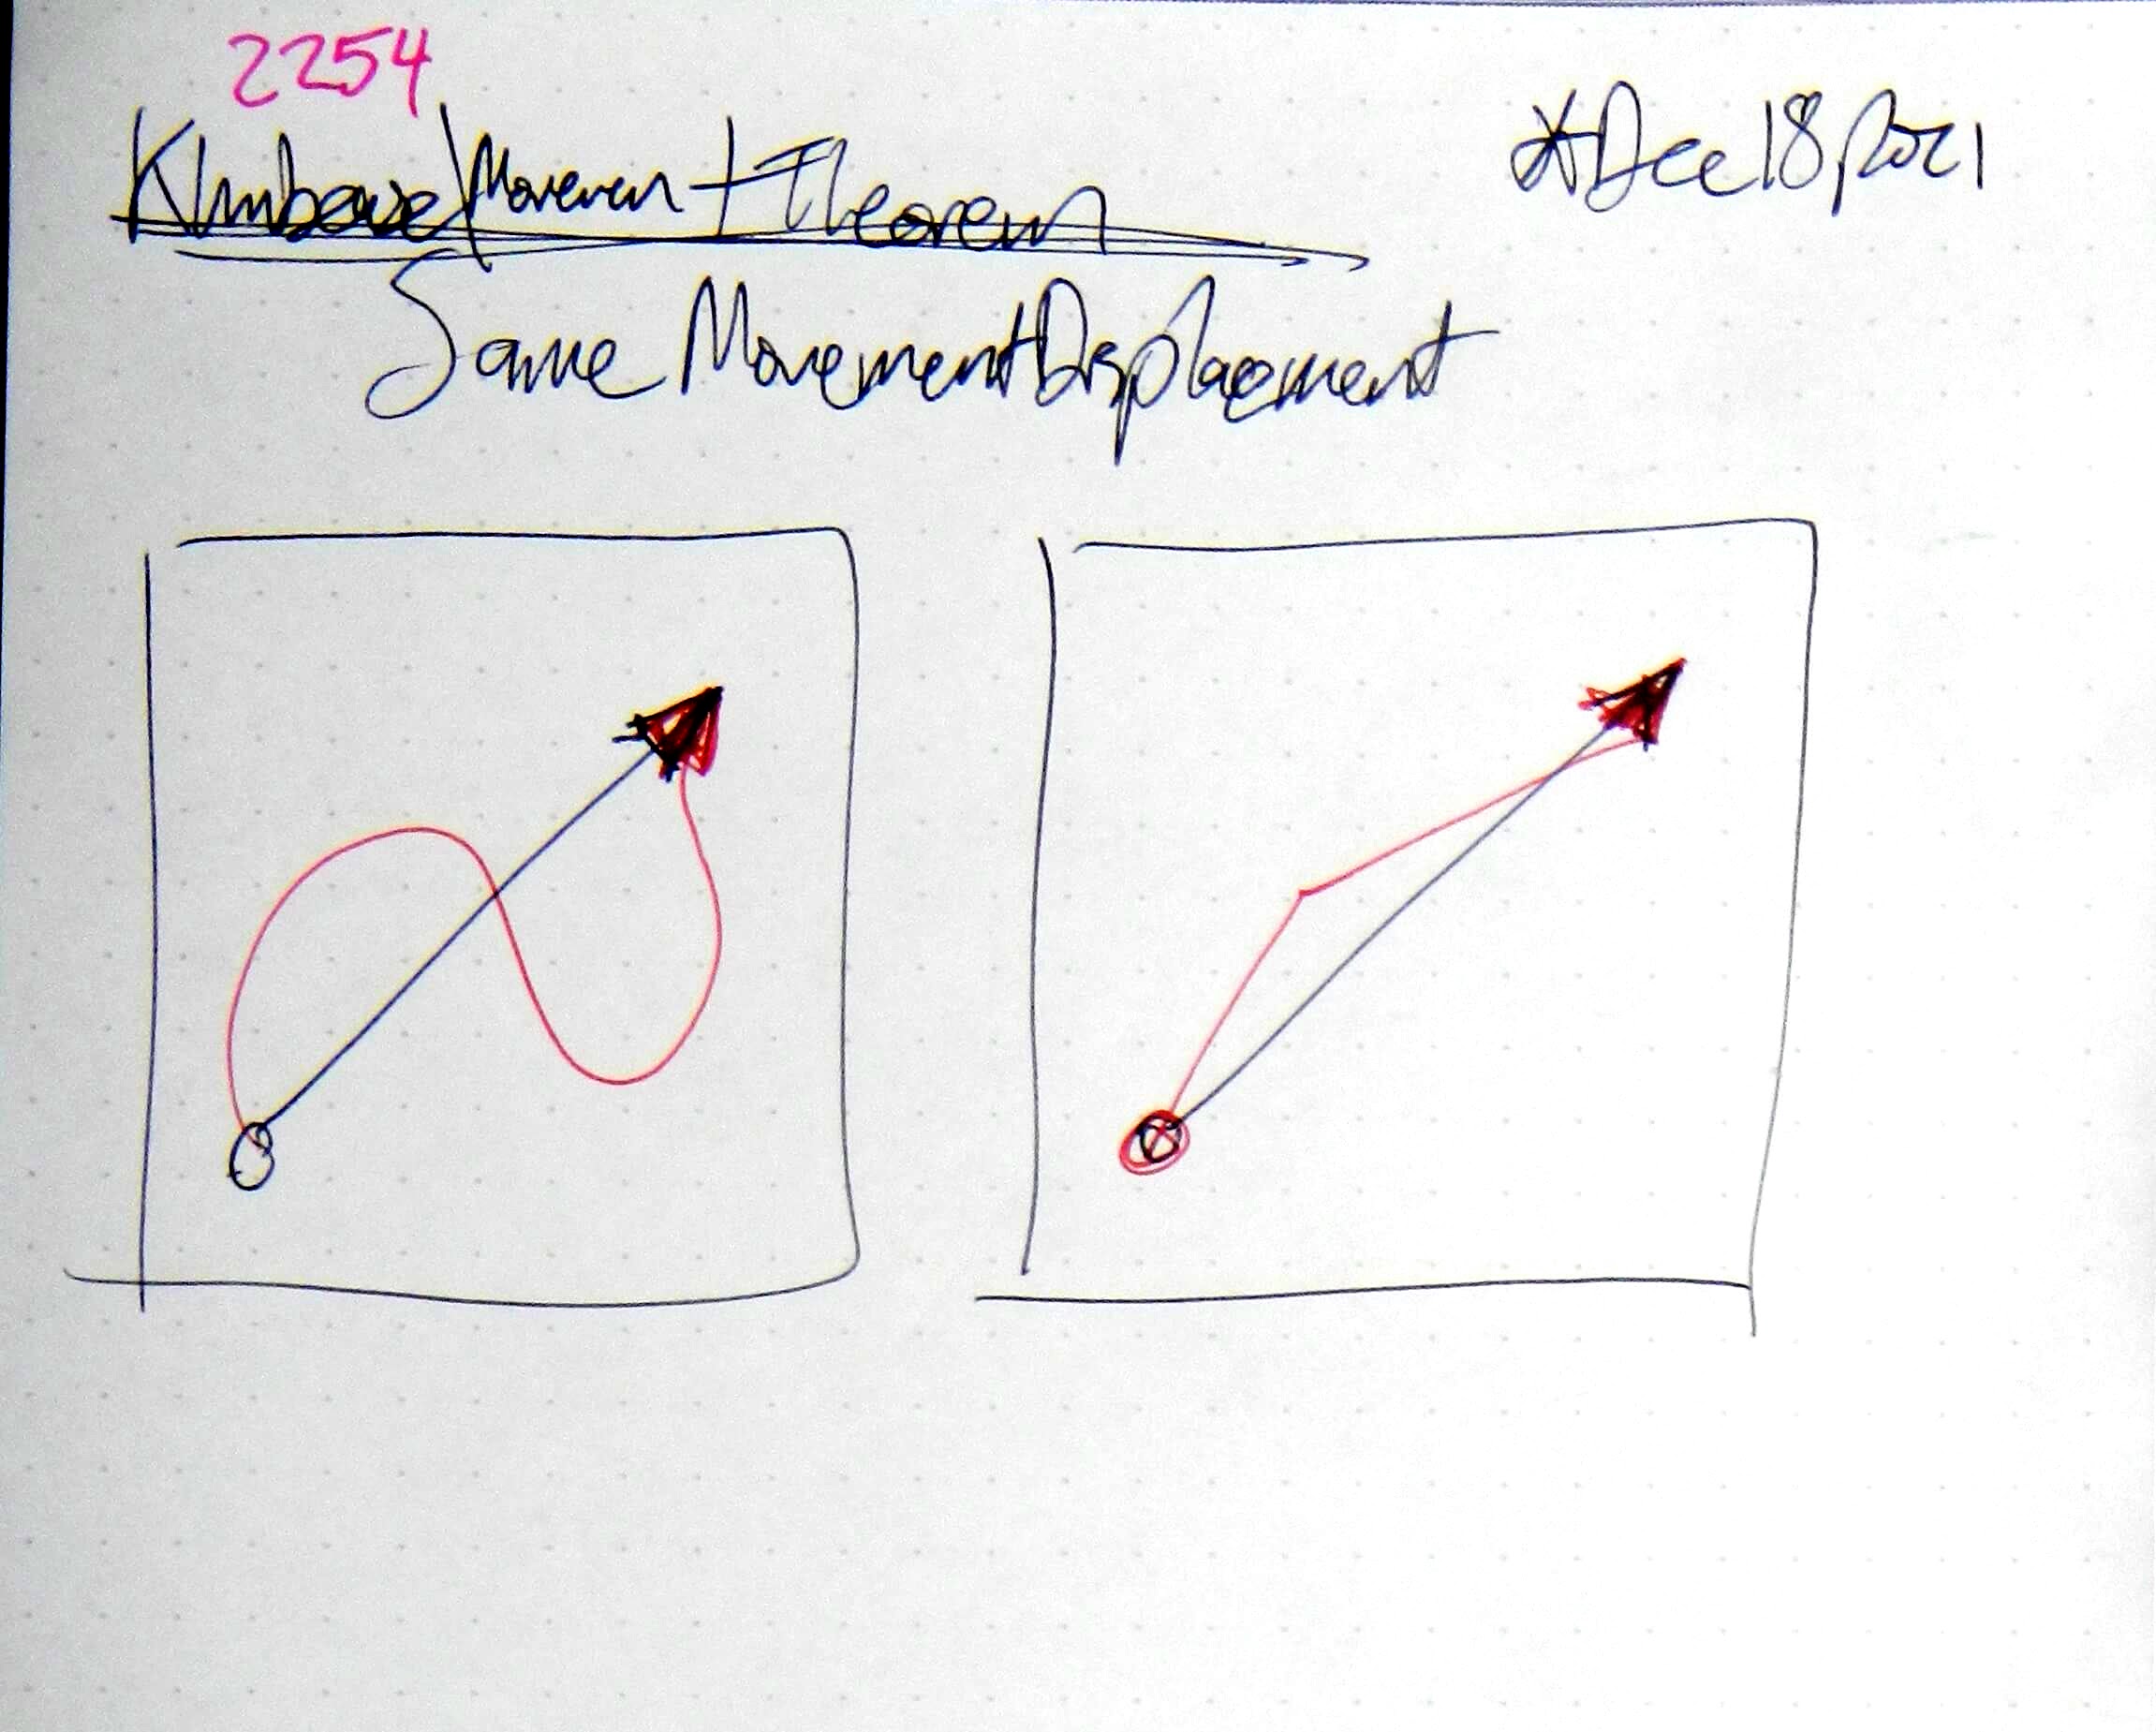 2254
Movement Theorem
*Dec 18, 2021
Same Movement Displacement